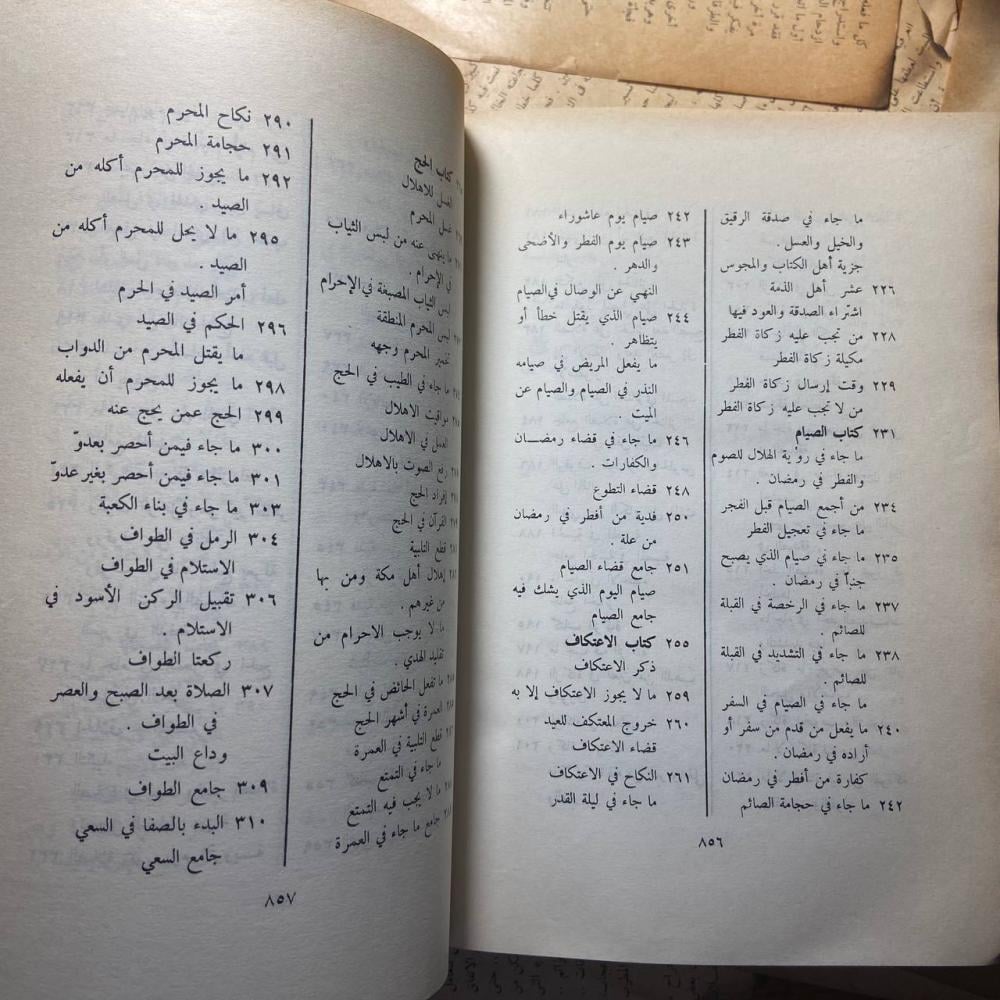 ما جاء في صدقة الرقيق
والخيل والعسل .
جزية أهل الكتاب والمجوس
٢٢٦ عشر أهل الذمة
اشتراء الصدقة والعود فيها
٢٢٨ من تجب عليه زكاة الفطر
مكيلة زكاة الفطر
٢٢٩ وقت إرسال زكاة الفطر
من لا تجب عليه زكاة الفطر
٢٣١ كتاب الصيام
ما جاء في رؤية الهلال للصوم
والفطر في رمضان .
٢٣٤ من أجمع الصيام قبل الفجر
ما جاء في تعجيل الفطر
٢٣٥ ما جاء في صيام الذي يصبح
جنباً في رمضان .
٢٣٧ ما جاء في الرخصة في القبلة
للصائم .
٢٣٨ ما جاء في التشديد في القبلة
للصائم .
ما جاء في الصيام في السفر
٢٤٠ ما يفعل من قدم من سفر أو
أراده في رمضان .
كفارة من أفطر في رمضان
٢٤٢ ما جاء في حجامة الصائم
٢٤٢ صيام يوم عاشوراء
٢٤٣ صيام يوم الفطر والأضحى
والدهر .
النهي عن الوصال في الصيام
٢٤٤ صيام الذي يقتل خطأ أو
يتظاهر .
ما يفعل المريض في صيامه
النذر في الصيام والصيام عن
الميت .
٢٤٦ ما جاء في قضاء رمضـان
والكفارات .
٢٤٨ قضاء التطوع
٢٥٠ فدية من أفطر في رمضان
من علة .
٢٥١ جامع قضاء الصيام
صيام اليوم الذي يشك فيه
جامع الصيام
٢٥٥ كتاب الاعتكاف
ذكر الاعتكاف
٢٥٩ ما لا يجوز الاعتكاف إلا به
٢٦٠ خروج المعتكف للعيد
قضاء الاعتكاف
٢٦١ النكاح في الاعتكاف
ما جاء في ليلة القدر
٨٥٦
كتاب الحج
الغسل للاهلال
غسل المحرم
ما ينهى عنه من لبس الثياب
في الإحرام .
لبس الثياب المصبغة في الإحرام
لبس المحرم المنطقة
تخمير المحرم وجهه
ما جاء في الطيب في الحج
مواقيت الاهلال
العمل في الاهلال
رفع الصوت بالاهلال
إفراد الحج
القرآن في الحج
قطع التلبية
إهلال أهل مكة ومن بها
من غيرهم .
ما لا يوجب الاحرام من
تقليد الهدي .
ما تفعل الحائض في الحج
العمرة في أشهر الحج
قطع التلبية في العمرة
ما جاء في التمتع
ما لا يجب فيه التمتع
جامع ما جاء في العمرة
٢٩٠ نكاح المحرم
٢٩١ حجامة المحرم
٢٩٢ ما يجوز للمحرم أكله من
الصيد .
٢٩٥ ما لا يحل للمحرم أكله من
الصيد .
أمر الصيد في الحرم
٢٩٦ الحكم في الصيد
ما يقتل المحرم من الدواب
٢٩٨ ما يجوز للمحرم أن يفعله
٢٩٩ الحج عمن يحج عنه
٣٠٠ ما جاء فيمن أحصر بعدوّ
٣٠١ ما جاء فيمن أحصر بغير عدوّ
٣٠٣ ما جاء في بناء الكعبة
٣٠٤ الرمل في الطواف
الاستلام في الطواف
٣٠٦ تقبيل الركن الأسود في
الاستلام .
ركعتا الطواف
٣٠٧ الصلاة بعد الصبح والعصر
في الطواف .
وداع البيت
٣٠٩ جامع الطواف
٣١٠ البدء بالصفا في السعي
جامع السعي
٨٥٧